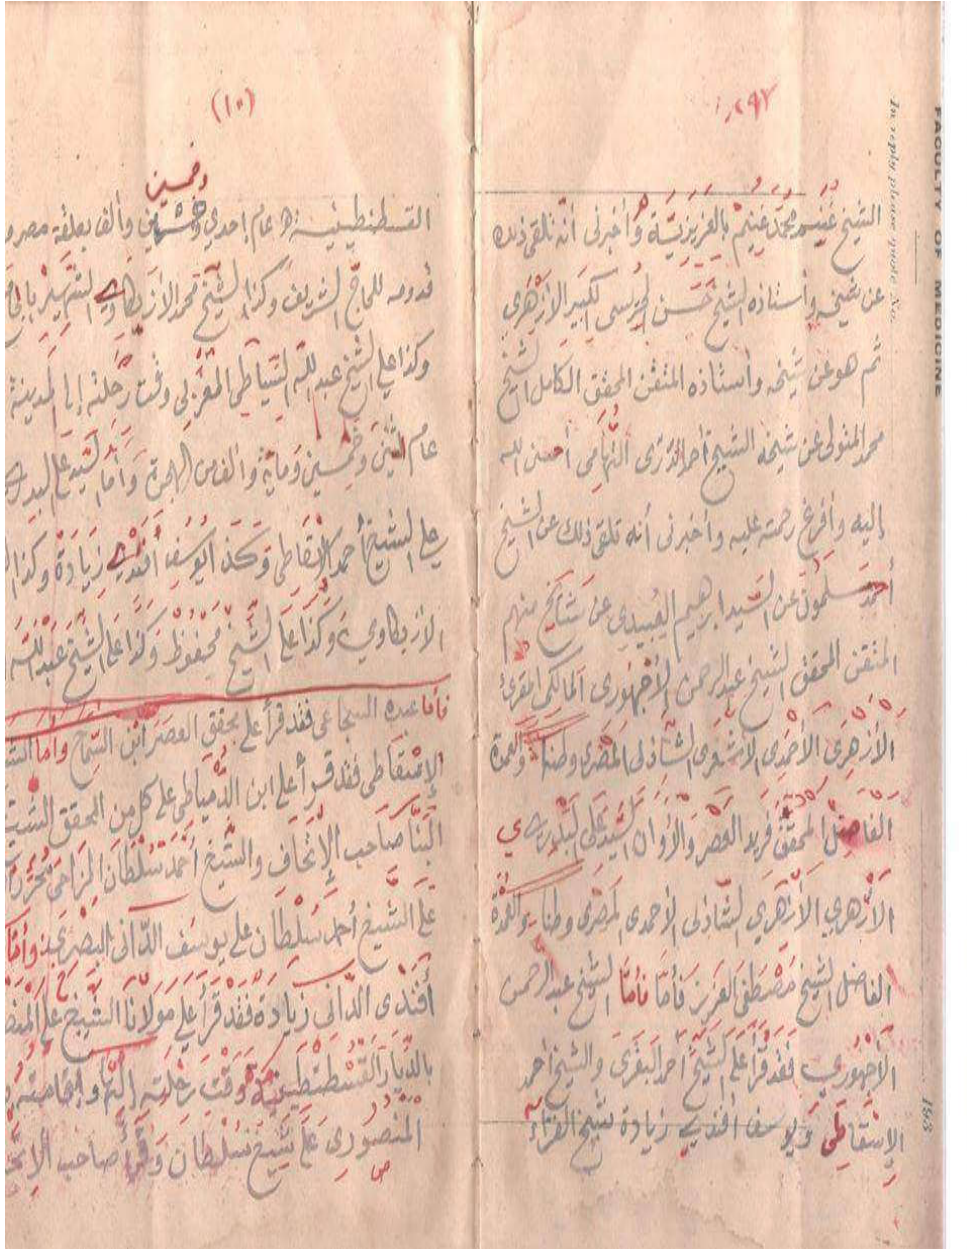 FACULTY OF MEDICINE
In reply please quote No.
193
٢٩٢
الشيخ غنيم محمد غنيم بالعزيزية وأخبرنى أنه تلقى ذلك
عن شيخه وأستاذه الشيخ حسن الجريسى الكبير الأزهرى
ثم هو عن شيخه وأستاذه المتقن المحقق الكامل الشيخ
محمد المتولى عن شيخه الشيخ أحمد الدرى التهامى أحسن الله
إليه وأفرغ رحمته عليه وأخبرنى أنه تلقى ذلك عن الشيخ
أحمد سلمون عن السيد ابرهيم العبيدي عن مشايخ منهم
المتقن المحقق الشيخ عبد الرحمن الأجهورى المالكى المقرئ
الأزهرى الأحمدى الأشعرى الشاذلى المصرى وطنا والعمدة
الفاضل المحقق فريد العصر والأوان السيد على البدرى
الأزهري الأزهري الشاذلى الأحمدى المصرى وطنا والعمدة
الفاضل الشيخ مصطفى العزيز فأما فأما الشيخ عبد الرحمن
الأجهوري فقد قرأ على الشيخ أحمد البقرى والشيخ أحمد
الإسقاطى ويوسف أفندي زيادة شيخ القراء
(١٠)
وخمسين
القسطنطينية عام إحدي وألف بعلقة مصر
قدومه للحاج الشريف وكذا الشيخ محمد الأزبكاوي الشهير
وكذا على الشيخ عبد الله الشماطى المغربى وقت رحلته إلى المدينة
عام اثنين وخمسين وماية والف من الهجرة وأما السيد على البدرى
على الشيخ أحمد الإسقاطى وكذا يوسف أفندي زيادة وكذا
الأزبكاوي وكذا على الشيخ محفوظ وكذا على الشيخ عبد الله
فأما عبده السجاعى فقد قرأ على محقق العصر ابن السماح وأما
الإسقاطى فقد قرأ على ابن الدمياطى على كل من المحقق الشيخ
البنا صاحب الإتحاف والشيخ أحمد سلطان المزاحى
على الشيخ أحمد سلطان على يوسف الدانى البصرى وأما
أفندى الدانى زيادة فقد قرأ على مولانا الشيخ على
بالديار القسطنطينية وقت رحلته إليها وإقامته
المنصورى على شيخ سلطان وقرأ صاحب